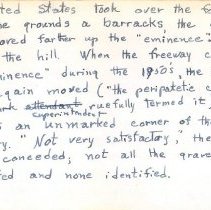 ted States took over the
e grounds a barracks the
oved farther up the "eminence"
the hill. When the freeway c
minence" during the 1950s, the
again moved ("the peripatetic c
ark attendant ruefully termed it
superintendent
s an unmarked corner of th
ry. "Not very satisfactory," the
conceded, not all the grave
fed and none identified.